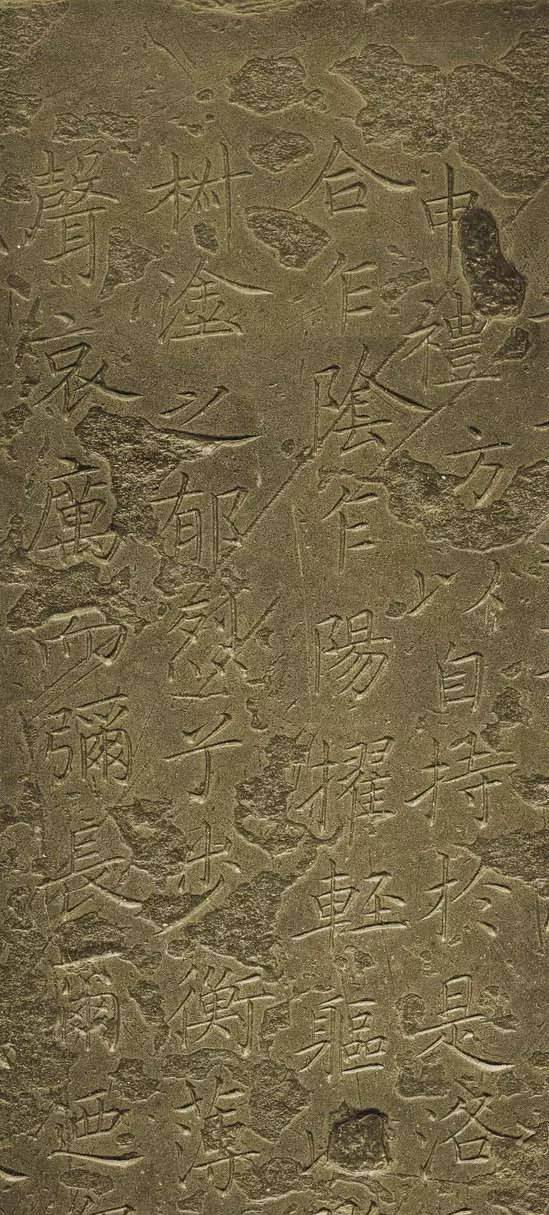 申禮方以自持於是洛
合乍陰乍陽擢輕軀以
椒塗之郁烈兮步衡薄
聲哀厲而彌長爾迺